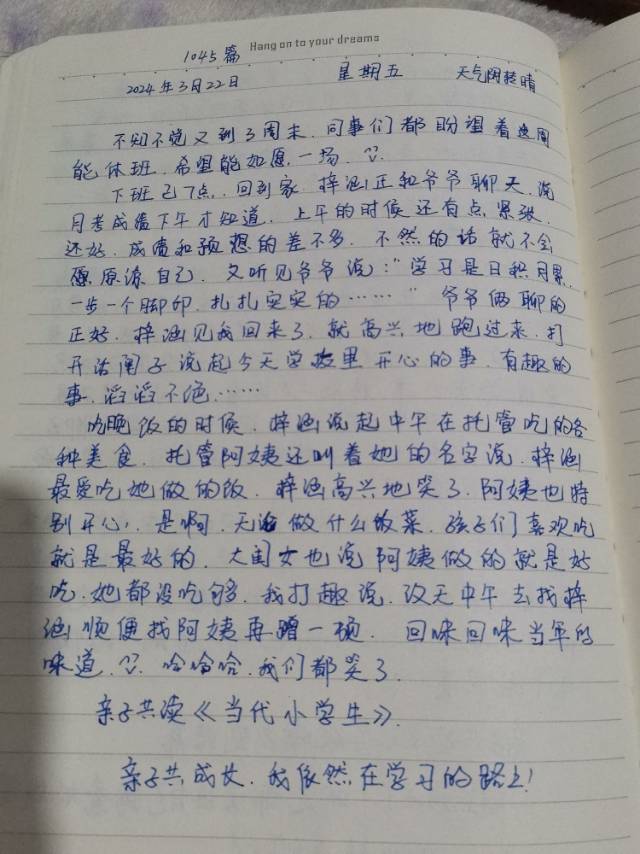 1045篇 Hang on to your dreams
2024年3月22日 星期五 天气阴转晴
不知不觉又到了周末.同事们都盼望着这周
能休班.希望能如愿一场.
下班已7点.回到家.梓涵正和爷爷聊天.说
月考成绩下午才知道.上午的时候还有点紧张.
还好.成绩和预想的差不多.不然的话就不会
原谅自己.又听见爷爷说:“学习是日积月累.
一步一个脚印.扎扎实实的……”爷爷俩聊的
正好.梓涵见我回来了.就高兴地跑过来.打
开话闸子说起今天学校里开心的事.有趣的
事.滔滔不绝……
吃晚饭的时候.梓涵说起中午在托管吃的各
种美食.托管阿姨还叫着她的名字说.梓涵
最爱吃她做的饭.梓涵高兴地笑了.阿姨也特
别开心.是啊.无论做什么饭菜.孩子们喜欢吃
就是最好的.大闺女也说阿姨做的就是好
吃.她都没吃够.我打趣说.改天中午去找梓
涵顺便找阿姨再蹭一顿.回味回味当年的
味道.哈哈哈.我们都笑了.
亲子共读《当代小学生》.
亲子共成长.我依然在学习的路上!